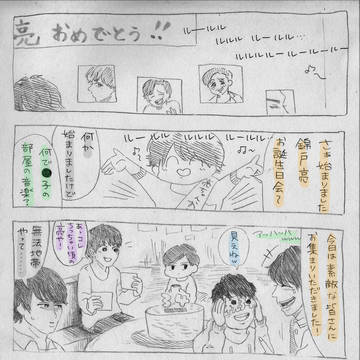 亮 おめでとう!!
ルールル
ルルル ルールル…
ルルルールールールー
さぁ始まりました
錦戸亮
お誕生日会て
ルールル ルールル
ルールル… ルールー
何か
始まりましたけど
何で●子の
部屋の音楽?
今日は素敵な皆さんに
お集まりいただきました!
アッハハハwww
見えねw
あ、コレ
ちっちゃい頃の
亮や!
無法地帯
やって……